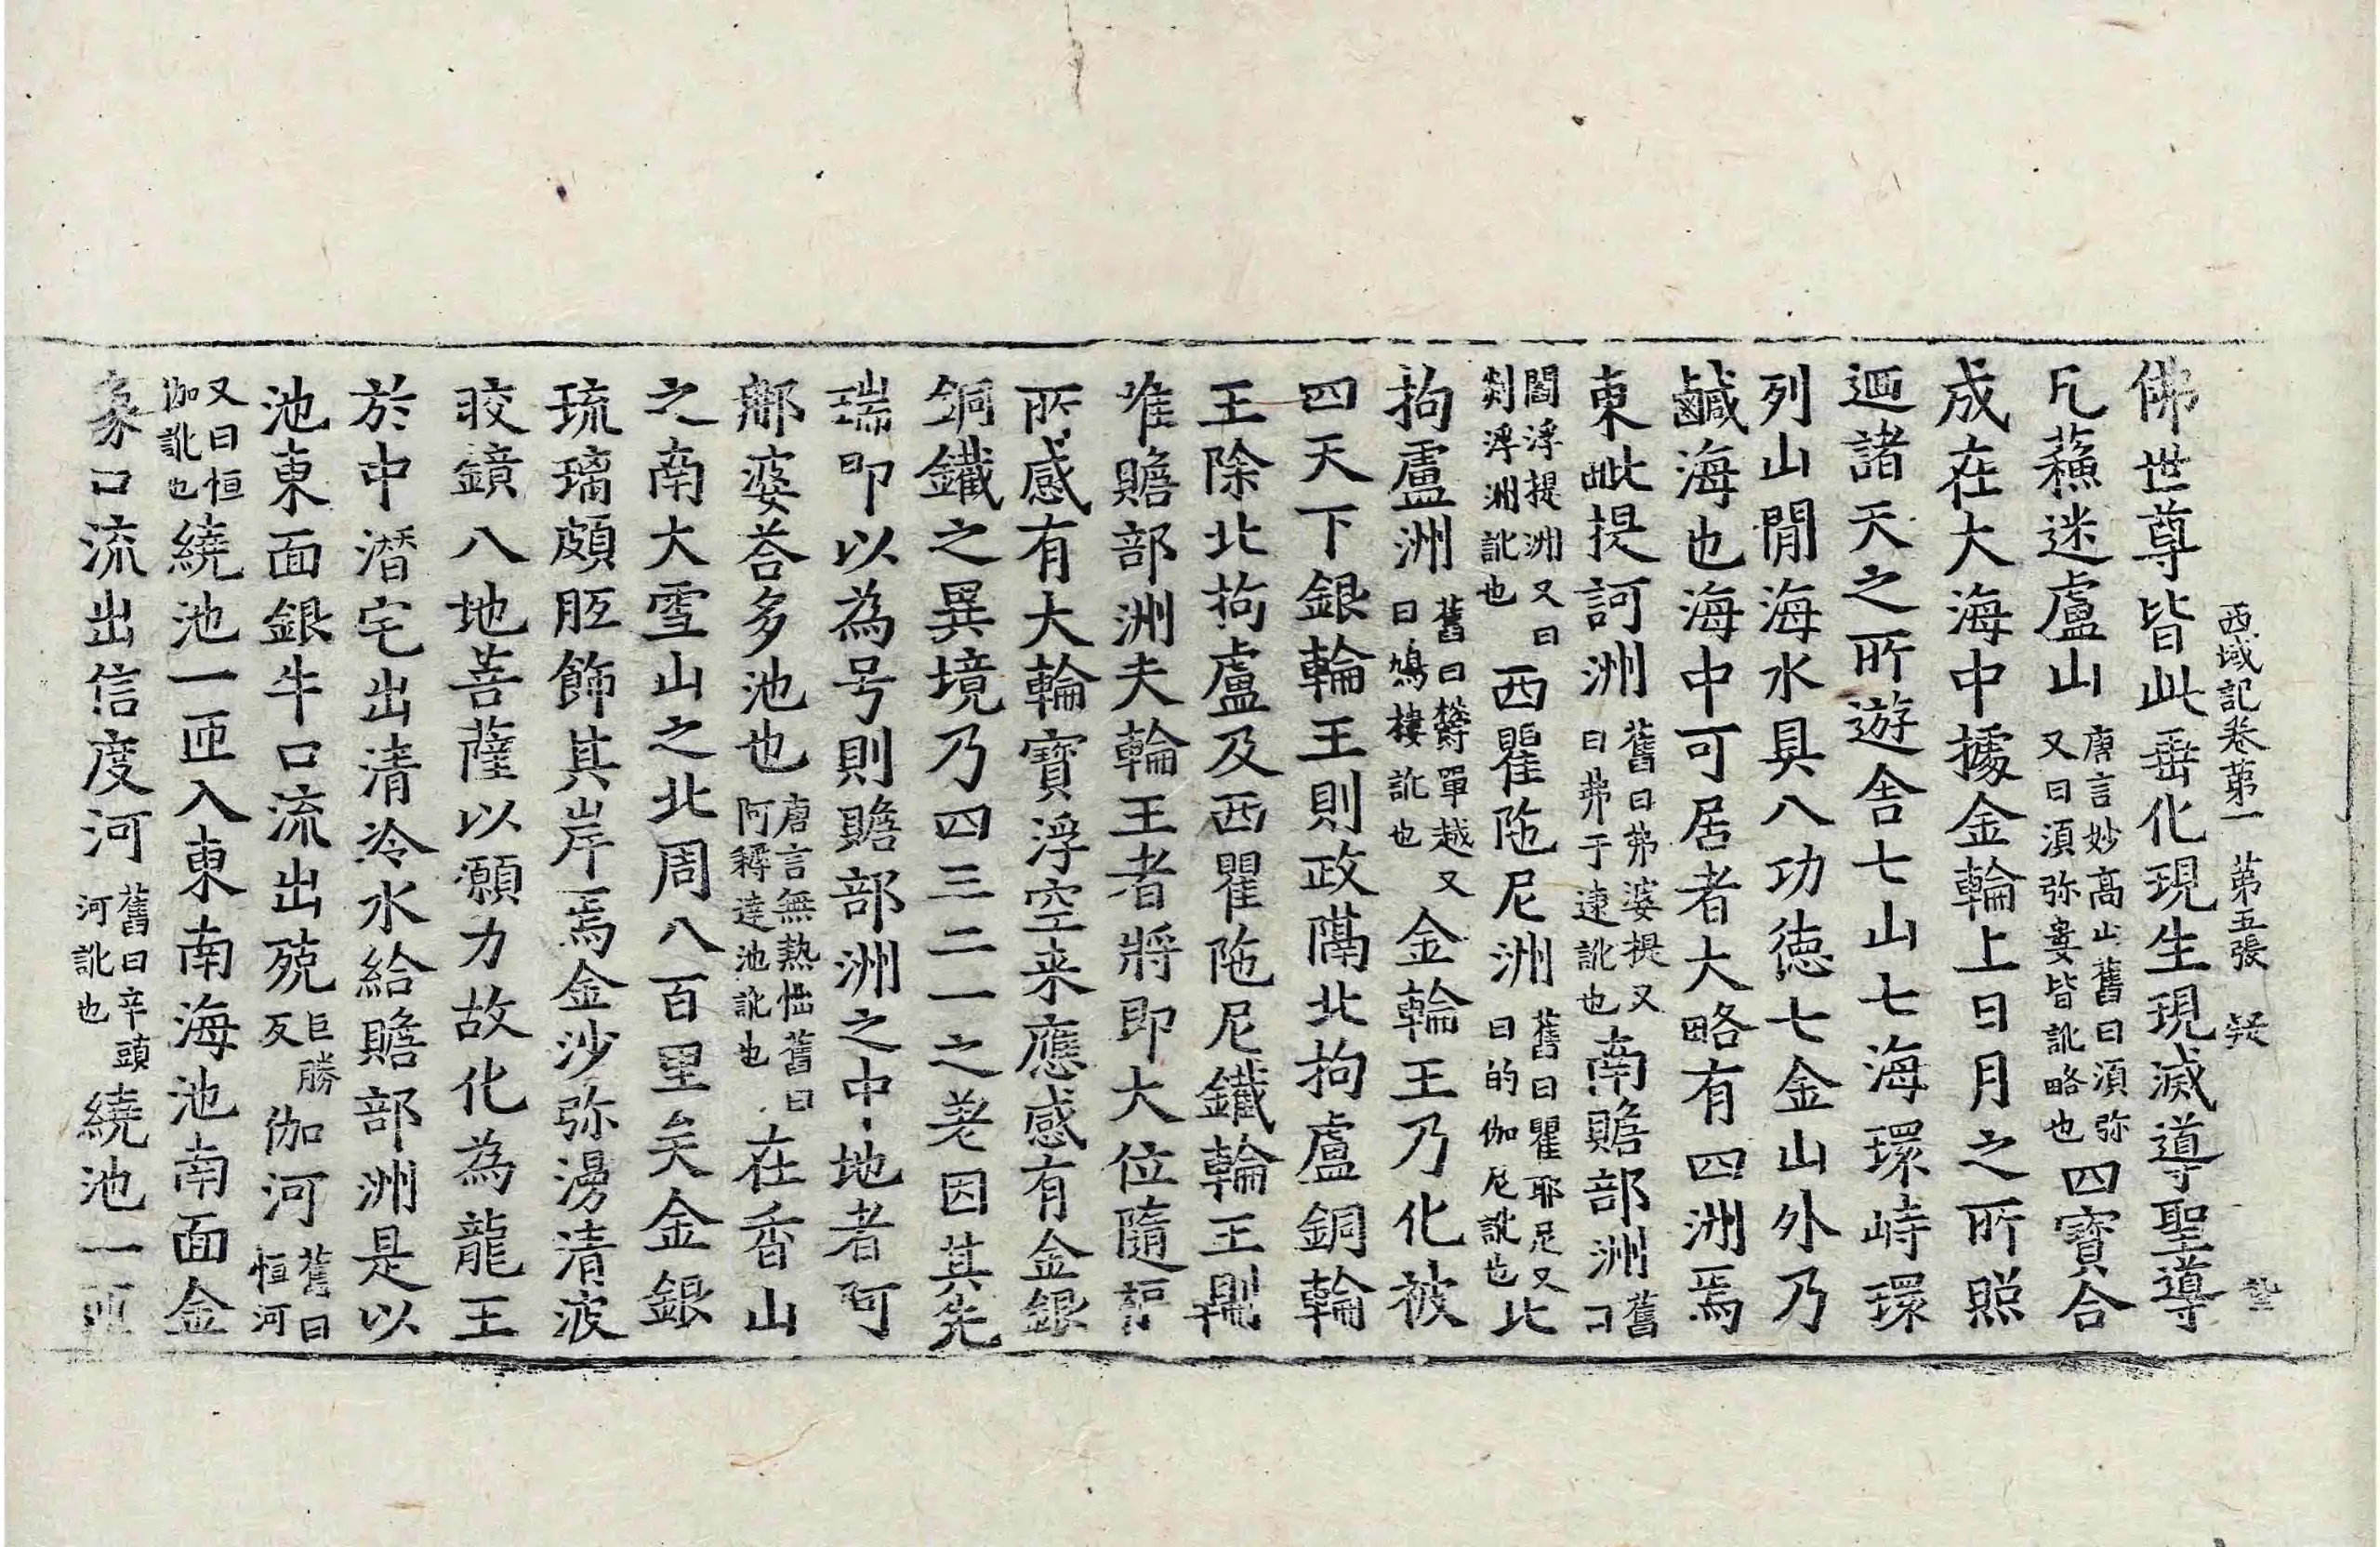 西域記卷第一　第五張　疑
佛世尊皆此垂化現生現滅導聖導
凡蘓迷盧山唐言妙高山舊曰須弥又曰須弥婁皆訛略也四寶合
成在大海中據金輪上日月之所照
迴諸天之所遊舎七山七海環峙環
列山閒海水具八功徳七金山外乃
鹹海也海中可居者大略有四洲焉
東毗提訶洲舊曰弗婆提又曰弗于逮訛也南贍部洲舊曰
閻浮提洲又曰剡浮洲訛也西瞿陁尼洲舊曰瞿耶尼又曰的伽尼訛也北
拘盧洲舊曰欝單越又曰鳩樓訛也金輪王乃化被
四天下銀輪王則政隔北拘盧銅輪
王除北拘盧及西瞿陁尼鐵輪王則
唯贍部洲夫輪王者將即大位隨福
所感有大輪寶浮空来應感有金銀
銅鐵之異境乃四三二一之差因其先
瑞即以為号則贍部洲之中地者阿
那婆荅多池也唐言無熱惱舊曰阿耨達池訛也在香山
之南大雪山之北周八百里矣金銀
琉璃頗胝飾其岸焉金沙弥漫清波
皎鏡八地菩薩以願力故化為龍王
於中潜宅出清冷水給贍部洲是以
池東面銀牛口流出殑巨勝反伽河舊曰恒河
又曰恒伽訛也繞池一匝入東南海池南面金
象口流出信度河舊曰辛頭河訛也繞池一匝